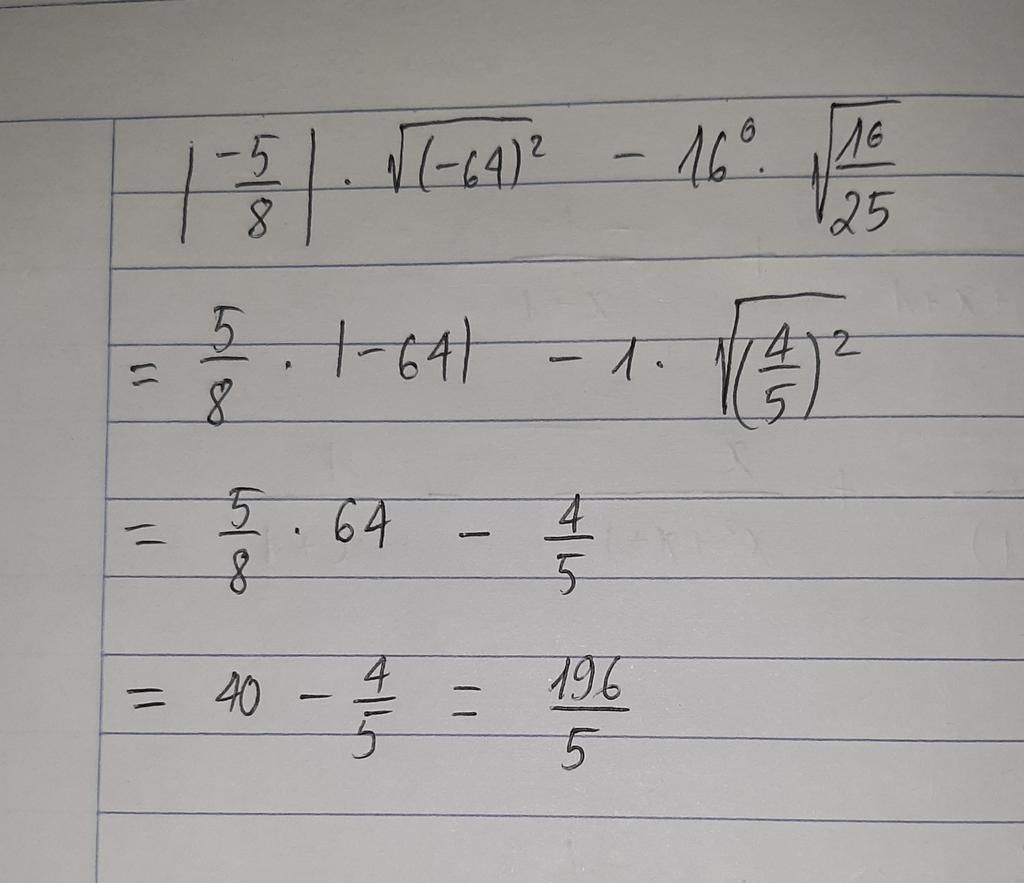 |-5/8| · √(-64)² - 16⁰ · √16/25
= 5/8 · |-64| - 1 · √(4/5)²
= 5/8 · 64 - 4/5
= 40 - 4/5 = 196/5